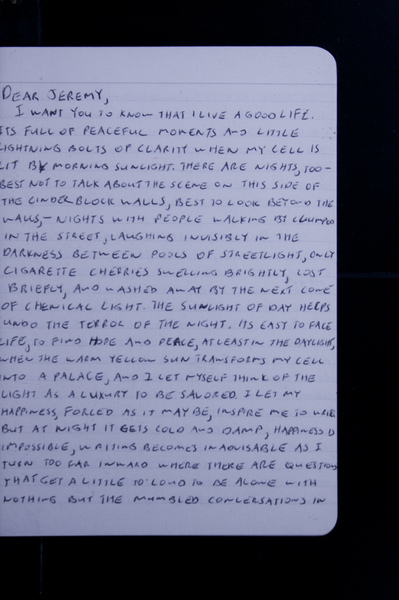 DEAR JEREMY,
I WANT YOU TO KNOW THAT I LIVE A GOOD LIFE.
ITS FULL OF PEACEFUL MOMENTS AND LITTLE
LIGHTNING BOLTS OF CLARITY WHEN MY CELL IS
LIT BY MORNING SUNLIGHT. THERE ARE NIGHTS, TOO—
BEST NOT TO TALK ABOUT THE SCENE ON THIS SIDE OF
THE CINDERBLOCK WALLS, BEST TO LOOK BEYOND THE
WALLS,— NIGHTS WITH PEOPLE WALKING BY CLUMPED
IN THE STREET, LAUGHING INVISIBLY IN THE
DARKNESS BETWEEN POOLS OF STREETLIGHT, ONLY
CIGARETTE CHERRIES SWELLING BRIGHTLY, LOST
BRIEFLY, AND WASHED AWAY BY THE NEXT CONE
OF CHEMICAL LIGHT. THE SUNLIGHT OF DAY HELPS
UNDO THE TERROR OF THE NIGHT. ITS EASY TO FACE
LIFE, TO FIND HOPE AND PEACE, AT LEAST IN THE DAYLIGHT,
WHEN THE WARM YELLOW SUN TRANSFORMS MY CELL
INTO A PALACE, AND I LET MYSELF THINK OF THE
LIGHT AS A LUXURY TO BE SAVORED. I LET MY
HAPPINESS, FORCED AS IT MAY BE, INSPIRE ME TO WRITE
BUT AT NIGHT IT GETS COLD AND DAMP, HAPPINESS
IMPOSSIBLE, WRITING BECOMES INADVISABLE AS I
TURN TOO FAR INWARD WHERE THERE ARE QUESTIONS
THAT GET A LITTLE TO LOUD TO BE ALONE WITH
NOTHING BUT THE MUMBLED CONVERSATIONS IN